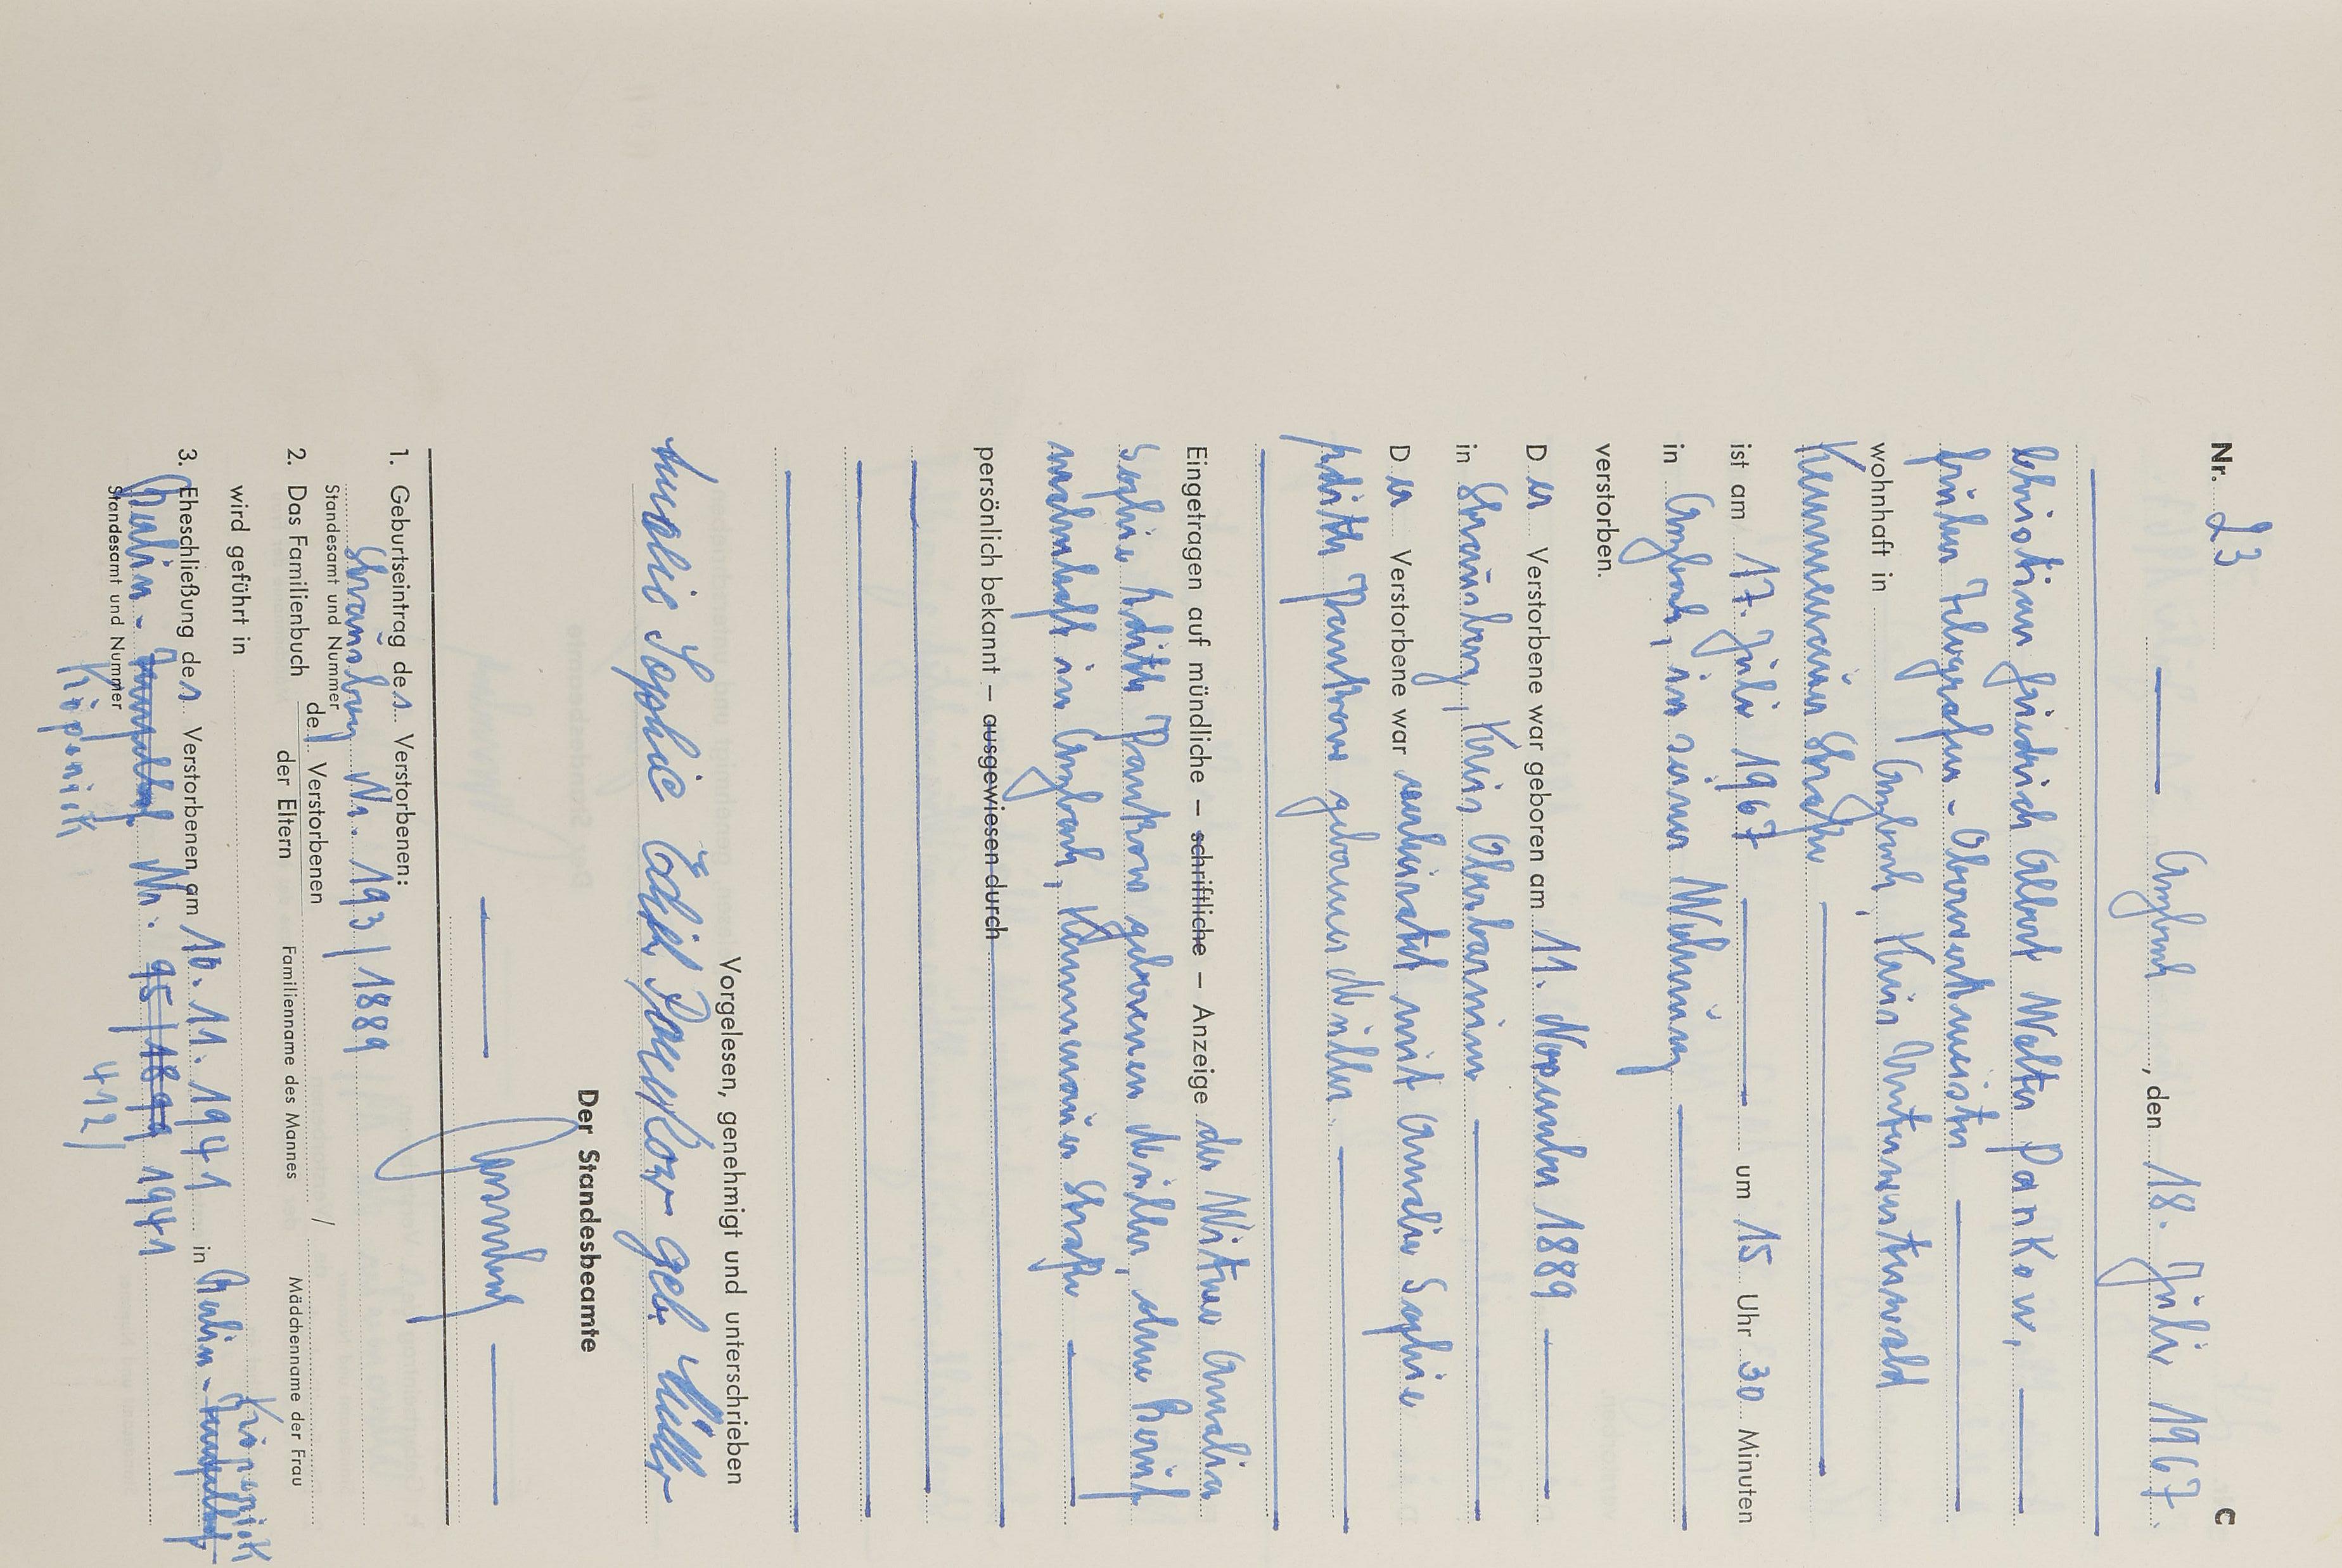 Nr. 23 C
Anzbach, den 18. Juli 1967.
Christian Friedrich Albert Walter Pankow,
früher Telegrafen-Oberwerkmeister
wohnhaft in
Kennenauer Straße
ist am 17. Juli 1967 um 15 Uhr 30 Minuten
in seiner Wohnung
verstorben.
Der Verstorbene war geboren am 11. November 1889
in Strausberg, Kreis Oberbarnim
Der Verstorbene war verheiratet mit Amalie Sophie
Edith Pankow geborenen Müller.
Eingetragen auf mündliche – schriftliche – Anzeige der Witwe Amalie
Sophie Edith Pankow geborenen Müller, ohne Beruf
wohnhaft in Straße
persönlich bekannt – ausgewiesen durch
Vorgelesen, genehmigt und unterschrieben
Amalie Sophie Edith Pankow geb. Müller
Der Standesbeamte
1. Geburtseintrag des Verstorbenen:
Strausberg Nr. 193/1889
Standesamt und Nummer
2. Das Familienbuch de Verstorbenen / der Eltern Familienname des Mannes / Mädchenname der Frau
wird geführt in
3. Eheschließung des Verstorbenen am 10. 11. 1941 in Berlin- Köpenick
Berlin- Nr. 95/1899 1941
Standesamt und Nummer
Köpenick 442/